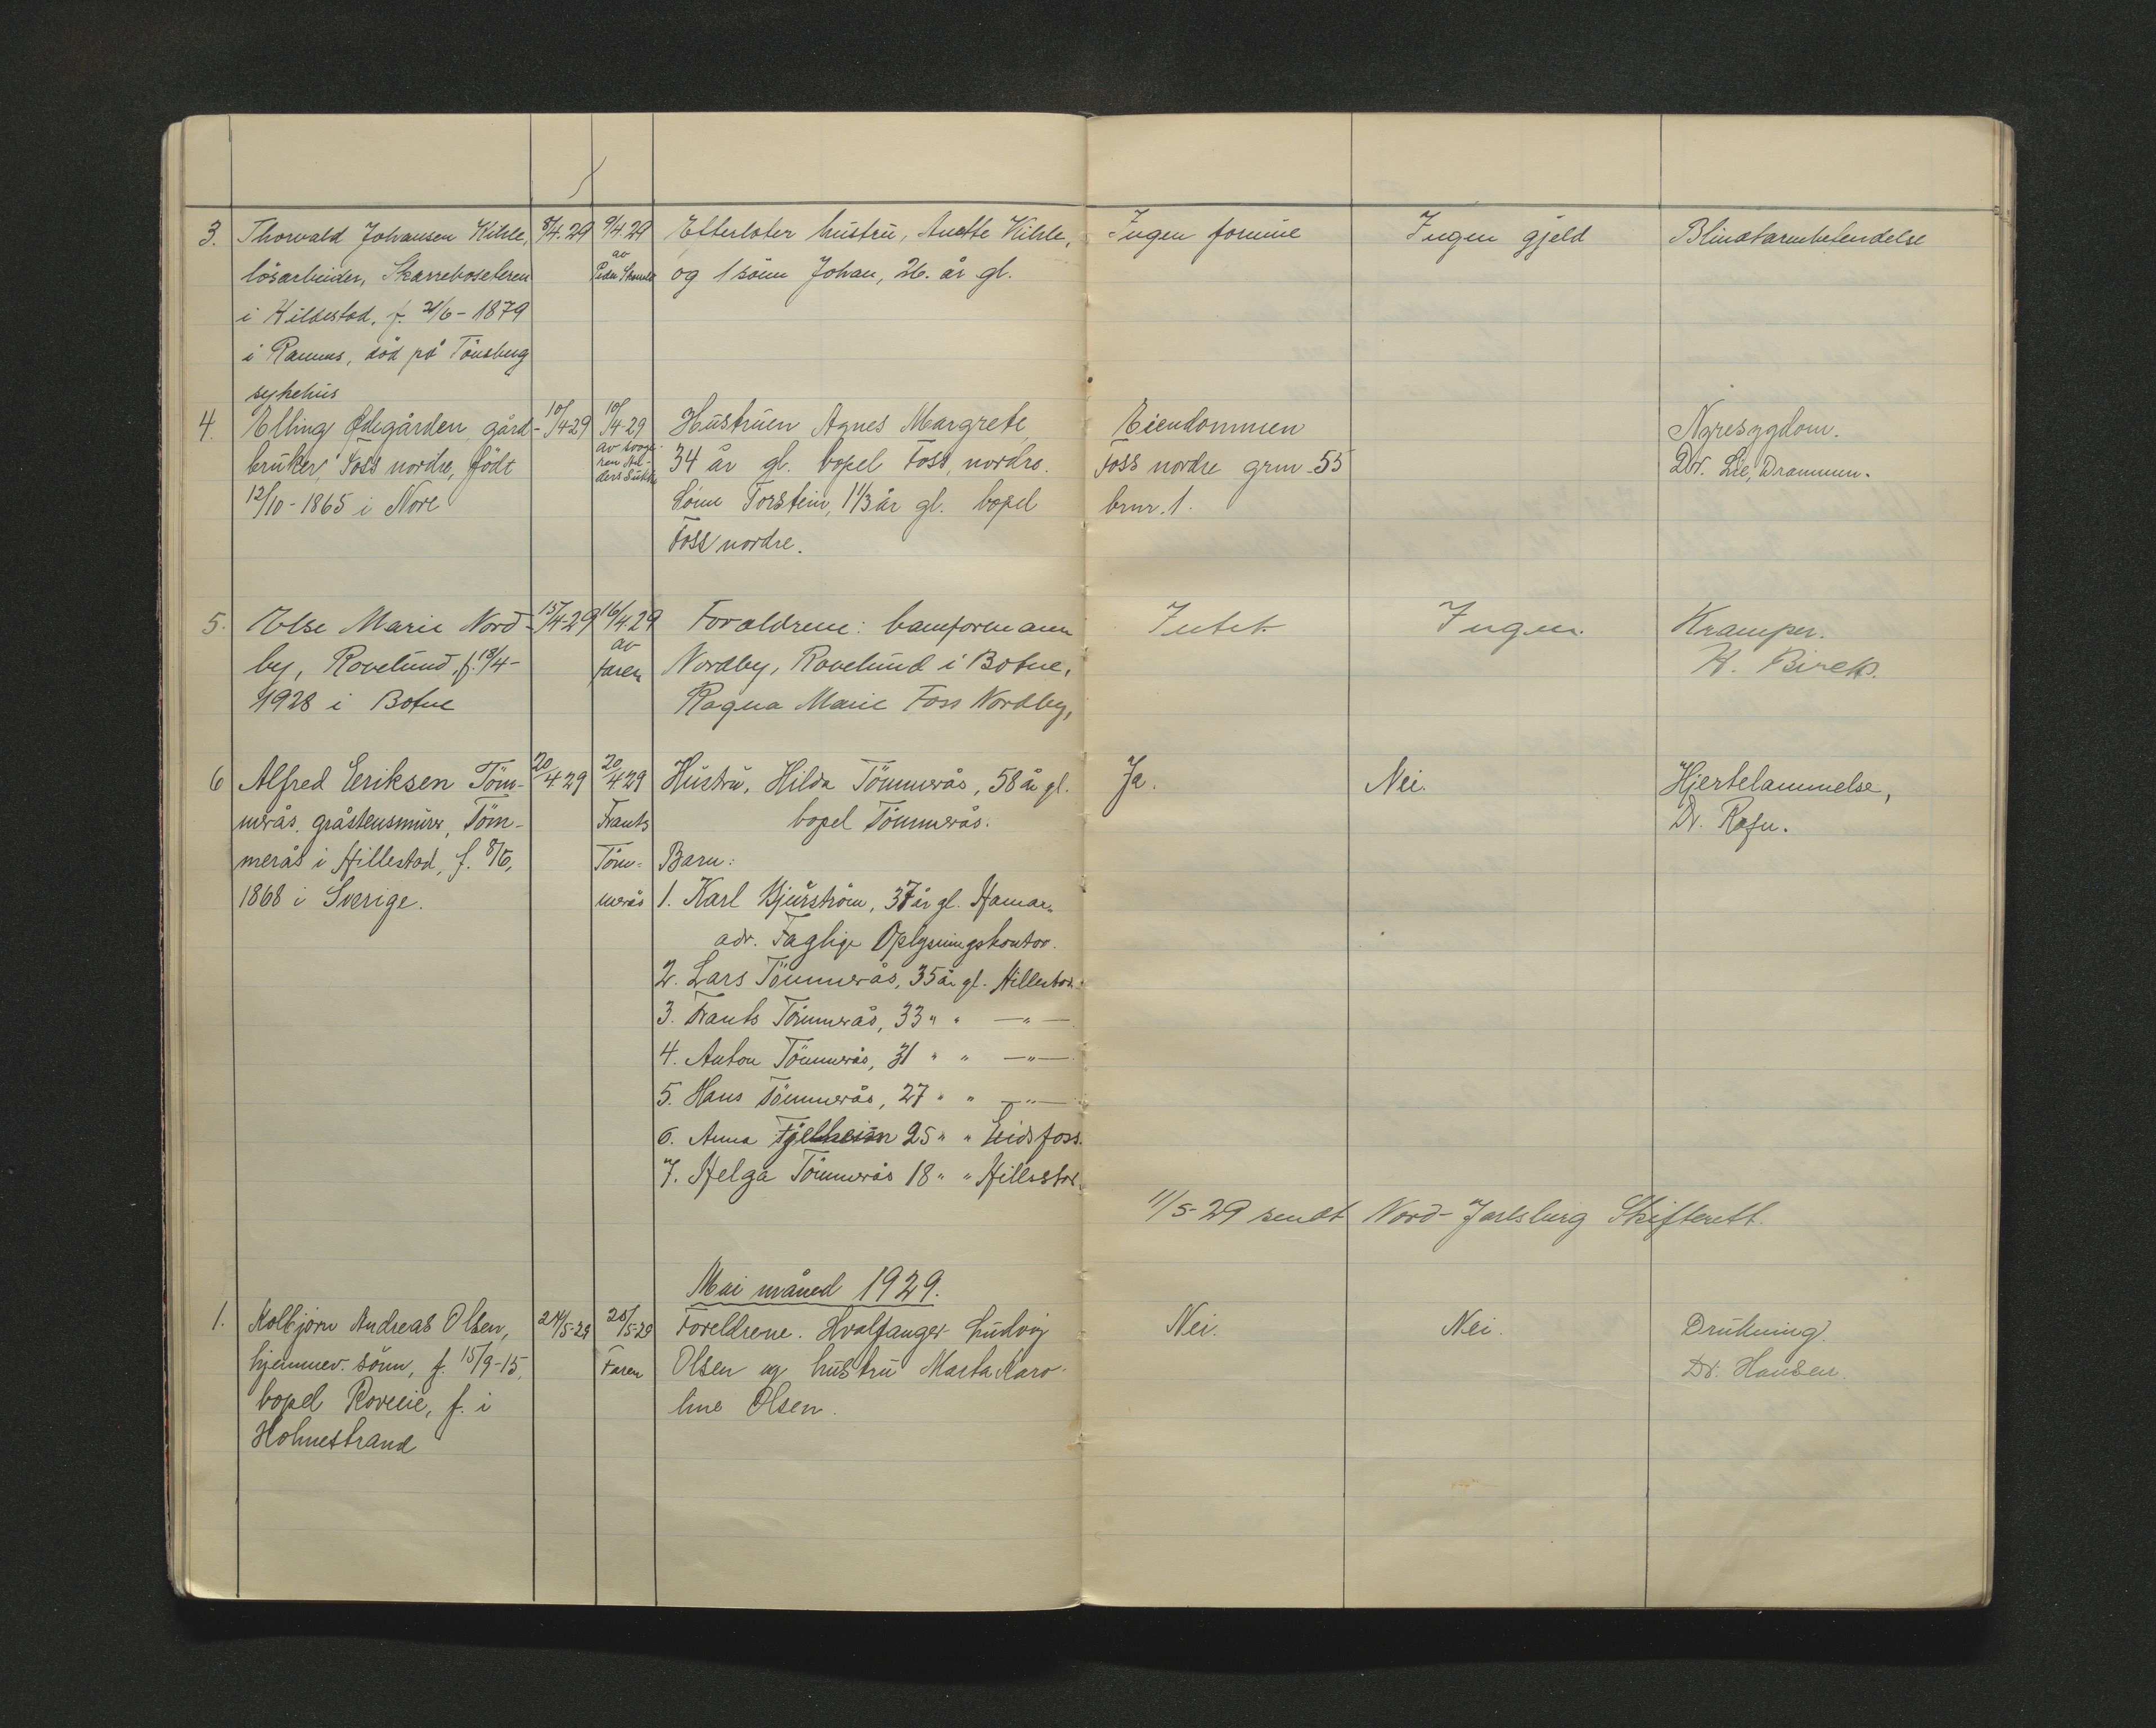 3. Thorvald Johansen Kihle, 8/4.29 9/4 29 Efterlater hustru, Anette Kihle, Ingen formue Ingen gjeld Blindtarmbetendelse
lösarbeider, Skarreboseteren av Peder og 1 sönn Johan, 26. år gl.
i Hildestad, f. 21/6-1879
i Ramnes, död på Tönsberg
sykehus
4. Elling Ødegården gård- 10/4-29 10/4 29 Hustruen Agnes Margrete Eiendommen Nyresygdom.
bruker, Foss nordre, född av svoge- 34 år gl. bopel Foss, nordre. Foss nordre grnr. 55 Dr. Lie, Drammen.
12/10-1865 i Nore ren An- ders Sönn Torstein, 1 1/3 år gl. bopel brnr. 1.
Foss nordre.
5. Else Marie Nord- 15/4-29 16/4 29 Foraldrene: banformann Intet Ingen. Kramper.
by, Rovelund, f. 18/4- av Nordby, Rovelund i Botne, K. Birck.
1928 i Botne faren Ragna Marie Foss Nordby,
6 Alfred Eriksen Töm- 20/4 29 20/4 29 Hustru, Hilda Tömmerås, 58 år gl. Ja. Nei. Hjertelammelse,
merås, gråstensmurer, Töm- Frants bopel Tömmerås. Dr. Rafn.
merås i Hillestad, f. 8/6, Töm- Barn:
1868 i Sverige. merås 1. Karl Bjurström, 37 år gl. Hamar,
adr. Faglige Oplysningskontor.
2. Lars Tömmerås, 35 år gl. Hillestad
3. Frants Tömmerås, 33 " " —"—
4. Anton Tömmerås, 31 " " —"—
5. Hans Tömmerås, 27 " " —"—
6. Anna Fjellheim 25 " " Eidsfoss.
7. Helga Tömmerås 18 " " Hillestad
11/5-29 sendt Nord-Jarlsberg Skifterett.
Mai måned 1929.
1. Kolbjörn Andreas Olsen, 24/5-29 25/5-29 Foreldrene. Hvalfanger Ludvig Nei. Nei. Drukning.
hjemmev. sönn, f. 15/9-15, Faren Olsen og hustru Marta Karo- Dr. Hansen.
bopel Roveeie, f. i line Olsen.
Holmestrand